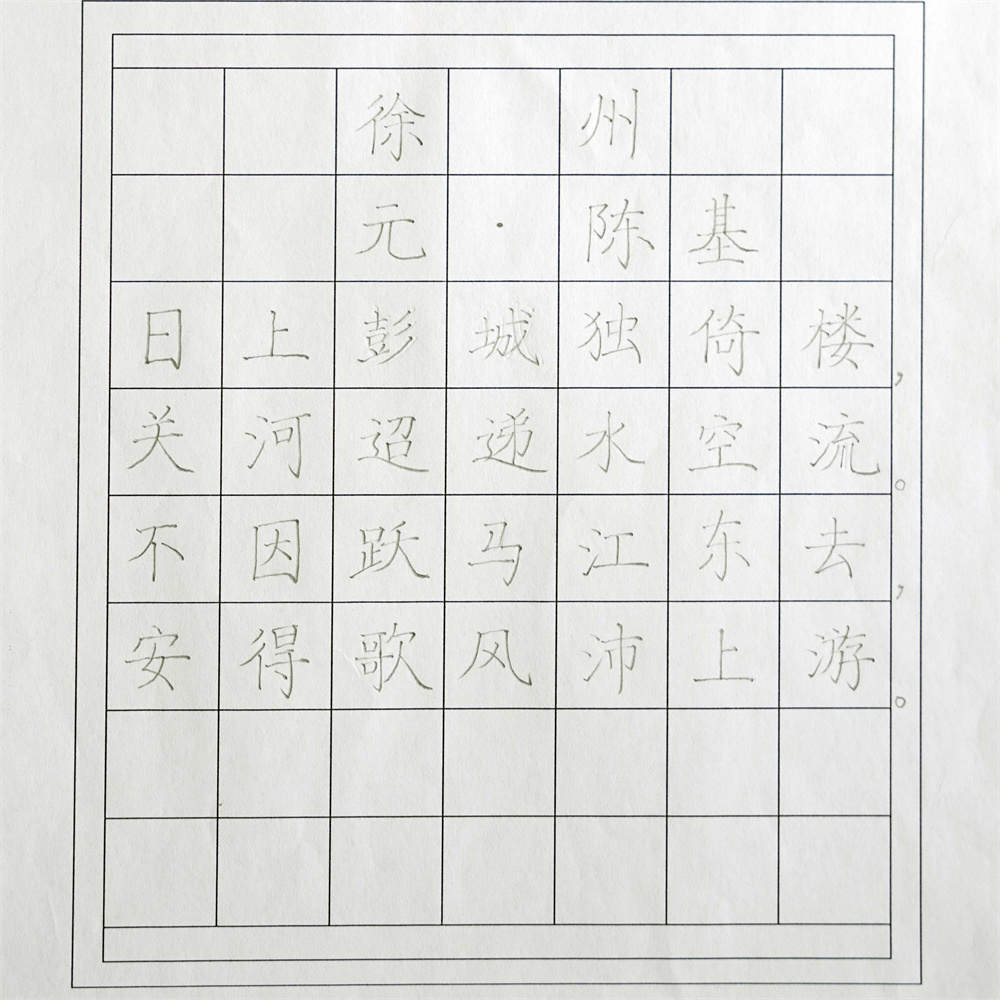 徐州
元·陈基
日上彭城独倚楼，
关河迢递水空流。
不因跃马江东去，
安得歌风沛上游。